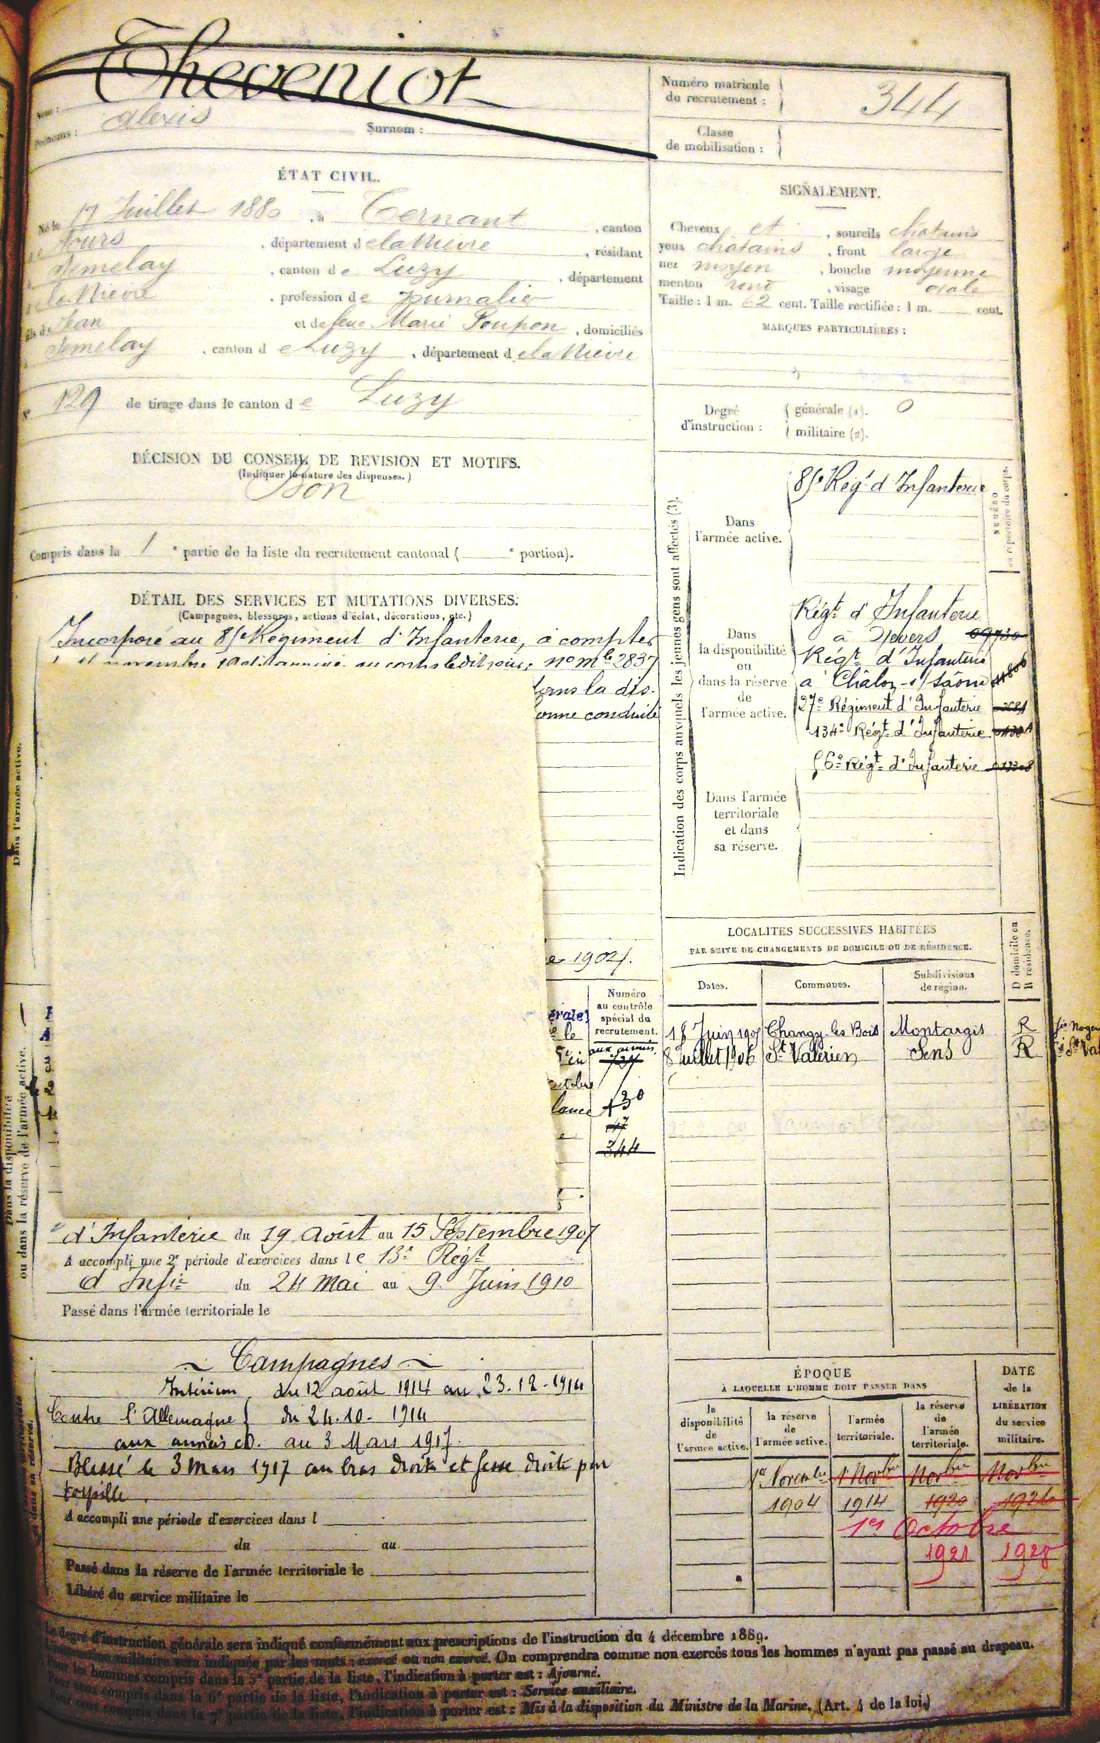 Theveniot
Nom :
Prénoms : Alexis
Surnom :
Numéro matricule
du recrutement :
344
Classe
de mobilisation :
ÉTAT CIVIL.
Né le 17 Juillet 1880, à Ternant, canton
de Fours, département de la Nièvre, résidant
Semelay, canton de Luzy, département
de la Nièvre, profession de Journalier
fils de Jean et de feue Marie Poupon, domiciliés
Semelay, canton de Luzy, département de la Nièvre
N° 129 de tirage dans le canton de Luzy
SIGNALEMENT.
Cheveux et, sourcils chatains
yeux chatains, front large
nez moyen, bouche moyenne
menton rond, visage ovale
Taille : 1 m. 62 cent. Taille rectifiée : 1 m. cent.
MARQUES PARTICULIÈRES :
Degré
d'instruction :
générale (1). 0
militaire (2).
DÉCISION DU CONSEIL DE REVISION ET MOTIFS.
(Indiquer la nature des dispenses.)
Bon
Compris dans la 1e partie de la liste du recrutement cantonal ( e portion).
DÉTAIL DES SERVICES ET MUTATIONS DIVERSES.
(Campagnes, blessures, actions d'éclat, décorations, etc.)
Incorporé au 85e Régiment d'Infanterie, à compter
no mle 2837
dans la dis-
bonne conduite
1904.
Indication des corps auxquels les jeunes gens sont affectés (3).
NUMÉRO
au répertoire du corps.
Dans
l'armée active.
85e Régt d'Infanterie
Dans
la disponibilité
ou
dans la réserve
de
l'armée active.
Régt d'Infanterie
à Nevers
Régt d'Infanterie
à Châlon-s/Saône
27e Régiment d'Infanterie
134e Régt d'Infanterie
56e Régt d'Infanterie
Dans l'armée
territoriale
et dans
sa réserve.
Dans l'armée active.
Dans la disponibilité
ou dans la réserve de l'armée active.
Numéro
au contrôle
spécial du
recrutement.
344
LOCALITÉS SUCCESSIVES HABITÉES
PAR SUITE DE CHANGEMENTS DE DOMICILE OU DE RÉSIDENCE.
D domicile ou
R résidence.
Dates.
Communes.
Subdivisions
de région.
18 Juin 1905 Changy les Bois Montargis R
8 Juillet 1906 St Valérien Sens R
d'Infanterie du 19 Août au 15 Septembre 1907
A accompli une 2e période d'exercices dans le 13e Régt
d'Infie du 24 Mai au 9 Juin 1910
Passé dans l'armée territoriale le
Campagnes
Intérieur du 12 août 1914 au 23.12.1914
Contre l'Allemagne du 24.10.1914
aux armées au 3 Mars 1917.
Blessé le 3 Mars 1917 au bras droite et fesse droite par
torpille.
A accompli une période d'exercices dans l
du au
Passé dans la réserve de l'armée territoriale le
Libéré du service militaire le
ÉPOQUE
À LAQUELLE L'HOMME DOIT PASSER DANS
DATE
de la
LIBÉRATION
du service
militaire.
la
disponibilité
de
l'armée active.
la réserve
de
l'armée active.
l'armée
territoriale.
la réserve
de
l'armée
territoriale.
1er Novembre 1 Novbre Novbre Novbre
1904 1914 1920 1926
1er Octobre
1921 1928
Le degré d'instruction générale sera indiqué conformément aux prescriptions de l'instruction du 4 décembre 1889.
L'instruction militaire sera indiquée par les mots : exercé ou non exercé. On comprendra comme non exercés tous les hommes n'ayant pas passé au drapeau.
Pour les hommes compris dans la 5e partie de la liste, l'indication à porter est : Ajourné.
Pour ceux compris dans la 6e partie de la liste, l'indication à porter est : Service auxiliaire.
Pour ceux compris dans la 7e partie de la liste, l'indication à porter est : Mis à la disposition du Ministre de la Marine. (Art. 4 de la loi.)